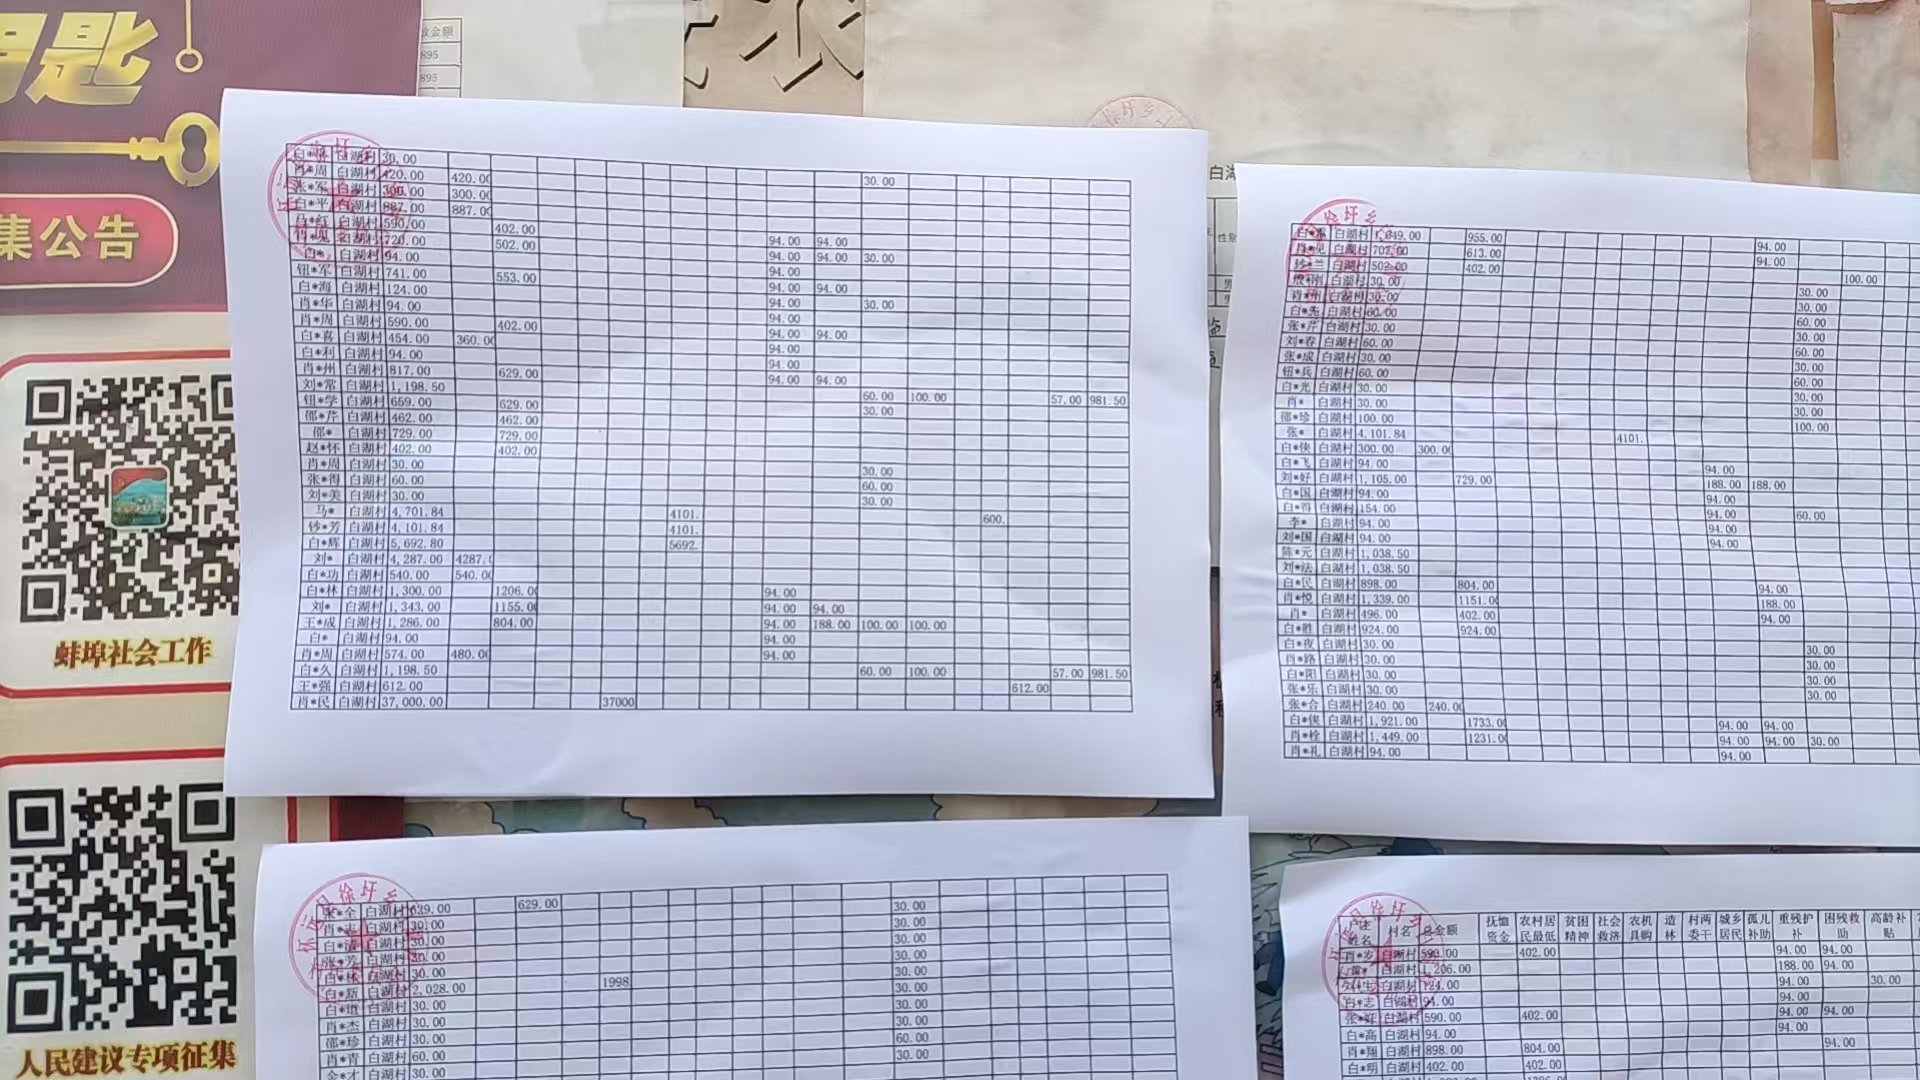 钥匙
集公告
蚌埠社会工作
人民建议专项征集
放金额
895
895
白湖村 30.00 30.00
肖*周 白湖村 420.00 420.00
张*军 白湖村 300.00 300.00
白*平 白湖村 887.00 887.00
马*红 白湖村 590.00 402.00 94.00 94.00
白湖村 720.00 502.00 94.00 94.00 30.00
白* 白湖村 94.00 94.00
钮*军 白湖村 741.00 553.00 94.00 94.00
白*海 白湖村 124.00 94.00 30.00
肖*华 白湖村 94.00 94.00
肖*周 白湖村 590.00 402.00 94.00 94.00
白*喜 白湖村 454.00 360.00 94.00
白*利 白湖村 94.00 94.00
肖*州 白湖村 817.00 629.00 94.00 94.00
刘*常 白湖村 1,198.50 60.00 100.00 57.00 981.50
钮*学 白湖村 659.00 629.00 30.00
邵*芹 白湖村 462.00 462.00
邵* 白湖村 729.00 729.00
赵*怀 白湖村 402.00 402.00
肖*周 白湖村 30.00 30.00
张*得 白湖村 60.00 60.00
刘*美 白湖村 30.00 30.00
马* 白湖村 4,701.84 4101. 600.
钞*芳 白湖村 4,101.84 4101.
白*辉 白湖村 5,692.80 5692.
刘* 白湖村 4,287.00 4287.0
白*功 白湖村 540.00 540.00
白*林 白湖村 1,300.00 1206.00 94.00
刘* 白湖村 1,343.00 1155.00 94.00 94.00
王*成 白湖村 1,286.00 804.00 94.00 188.00 100.00 100.00
白* 白湖村 94.00 94.00
肖*周 白湖村 574.00 480.00 94.00
白*久 白湖村 1,198.50 60.00 100.00 57.00 981.50
王*强 白湖村 612.00 612.00
肖*民 白湖村 37,000.00 37000
白湖村 1,049.00 955.00 94.00
肖*见 白湖村 707.00 613.00 94.00
钞*兰 白湖村 502.00 402.00 100.00
殷*刚 白湖村 30.00 30.00
肖*州 白湖村 30.00 30.00
白*先 白湖村 60.00 60.00
张*芹 白湖村 30.00 30.00
刘*春 白湖村 60.00 60.00
张*成 白湖村 30.00 30.00
钮*兵 白湖村 60.00 60.00
白*光 白湖村 30.00 30.00
肖* 白湖村 30.00 30.00
邵*珍 白湖村 100.00 100.00
张* 白湖村 4,101.84 4101.
白*侠 白湖村 300.00 300.00
白*飞 白湖村 94.00 94.00
刘*好 白湖村 1,105.00 729.00 188.00 188.00
白*国 白湖村 94.00 94.00
白*得 白湖村 154.00 94.00 60.00
李* 白湖村 94.00 94.00
刘*国 白湖村 94.00 94.00
陈*元 白湖村 1,038.50
刘*法 白湖村 1,038.50
白*民 白湖村 898.00 804.00 94.00
肖*悦 白湖村 1,339.00 1151.00 188.00
肖* 白湖村 496.00 402.00 94.00
白*胜 白湖村 924.00 924.00
白*夜 白湖村 30.00 30.00
肖*路 白湖村 30.00 30.00
白*阳 白湖村 30.00 30.00
张*乐 白湖村 30.00 30.00
张*合 白湖村 240.00 240.00
白*侠 白湖村 1,921.00 1733.00 94.00 94.00
肖*栓 白湖村 1,449.00 1231.00 94.00 94.00 30.00
肖*礼 白湖村 94.00 94.00
张*全 白湖村 629.00 629.00
肖*志 白湖村 30.00 30.00
白*清 白湖村 30.00 30.00
张*芳 白湖村 30.00 30.00
白*林 白湖村 30.00 30.00
白*新 白湖村 2,028.00 1998 30.00
白*道 白湖村 30.00 30.00
肖*杰 白湖村 30.00 30.00
邵*珍 白湖村 30.00 30.00
肖*青 白湖村 60.00 60.00
金*才 白湖村 30.00 30.00
姓名 村名 总金额 抚恤资金 农村居民最低 贫困精神 社会救济 农机具购 造林 村两委干 城乡居民 孤儿补助 重残护补 困残救助 高龄补贴
肖*岁 白湖村 590.00 402.00 94.00 94.00
白湖村 1,206.00 188.00 94.00
白湖村 124.00 94.00 30.00
肖*志 白湖村 94.00 94.00
张*好 白湖村 590.00 402.00 94.00 94.00
白*高 白湖村 94.00 94.00
肖*翔 白湖村 898.00 804.00 94.00
白*明 白湖村 402.00 402.00